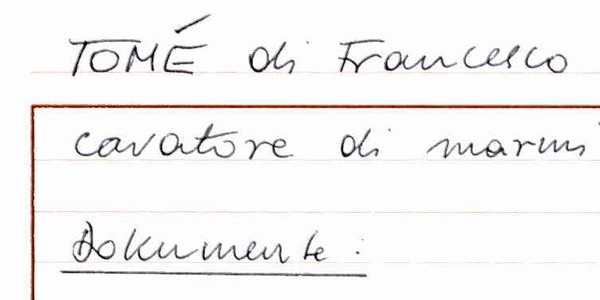 TOMÉ di Francesco
cavatore di marmi
Dokumente :